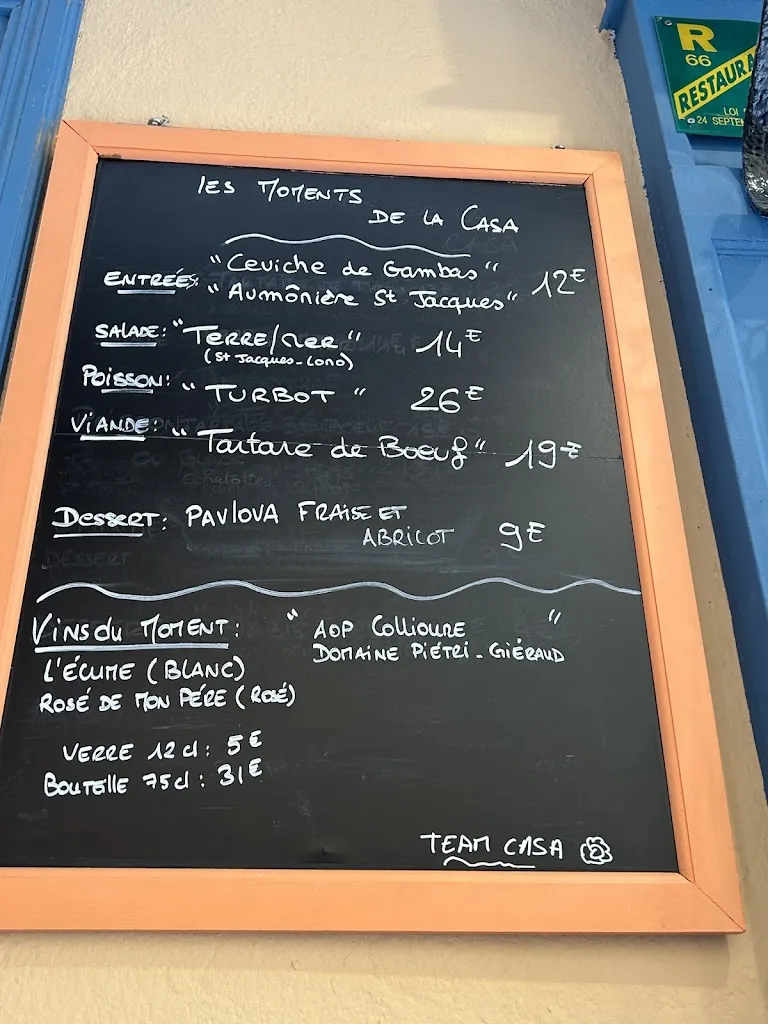 les MOMENTS
DE LA CASA
ENTREÉS: "Ceviche de Gambas" 12€
"Aumônière St Jacques"
SALADE: "TERRE/MER" 14€
(St Jacques - Lomo)
POISSON: "TURBOT" 26€
VIANDE: "Tartare de Boeuf" 19€
DESSERT: PAVLOVA FRAISE ET
ABRICOT 9€
VINS du MOMENT: " AOP Collioure "
DOMAINE PIÉTRI-GIÉRAUD
L'ÉCUME (BLANC)
ROSÉ DE MON PÉRE (ROSÉ)
VERRE 12 cl: 5€
BOUTEILLE 75cl: 31€
TEAM CASA
R
66
RESTAURA
LOI
24 SEPTEM